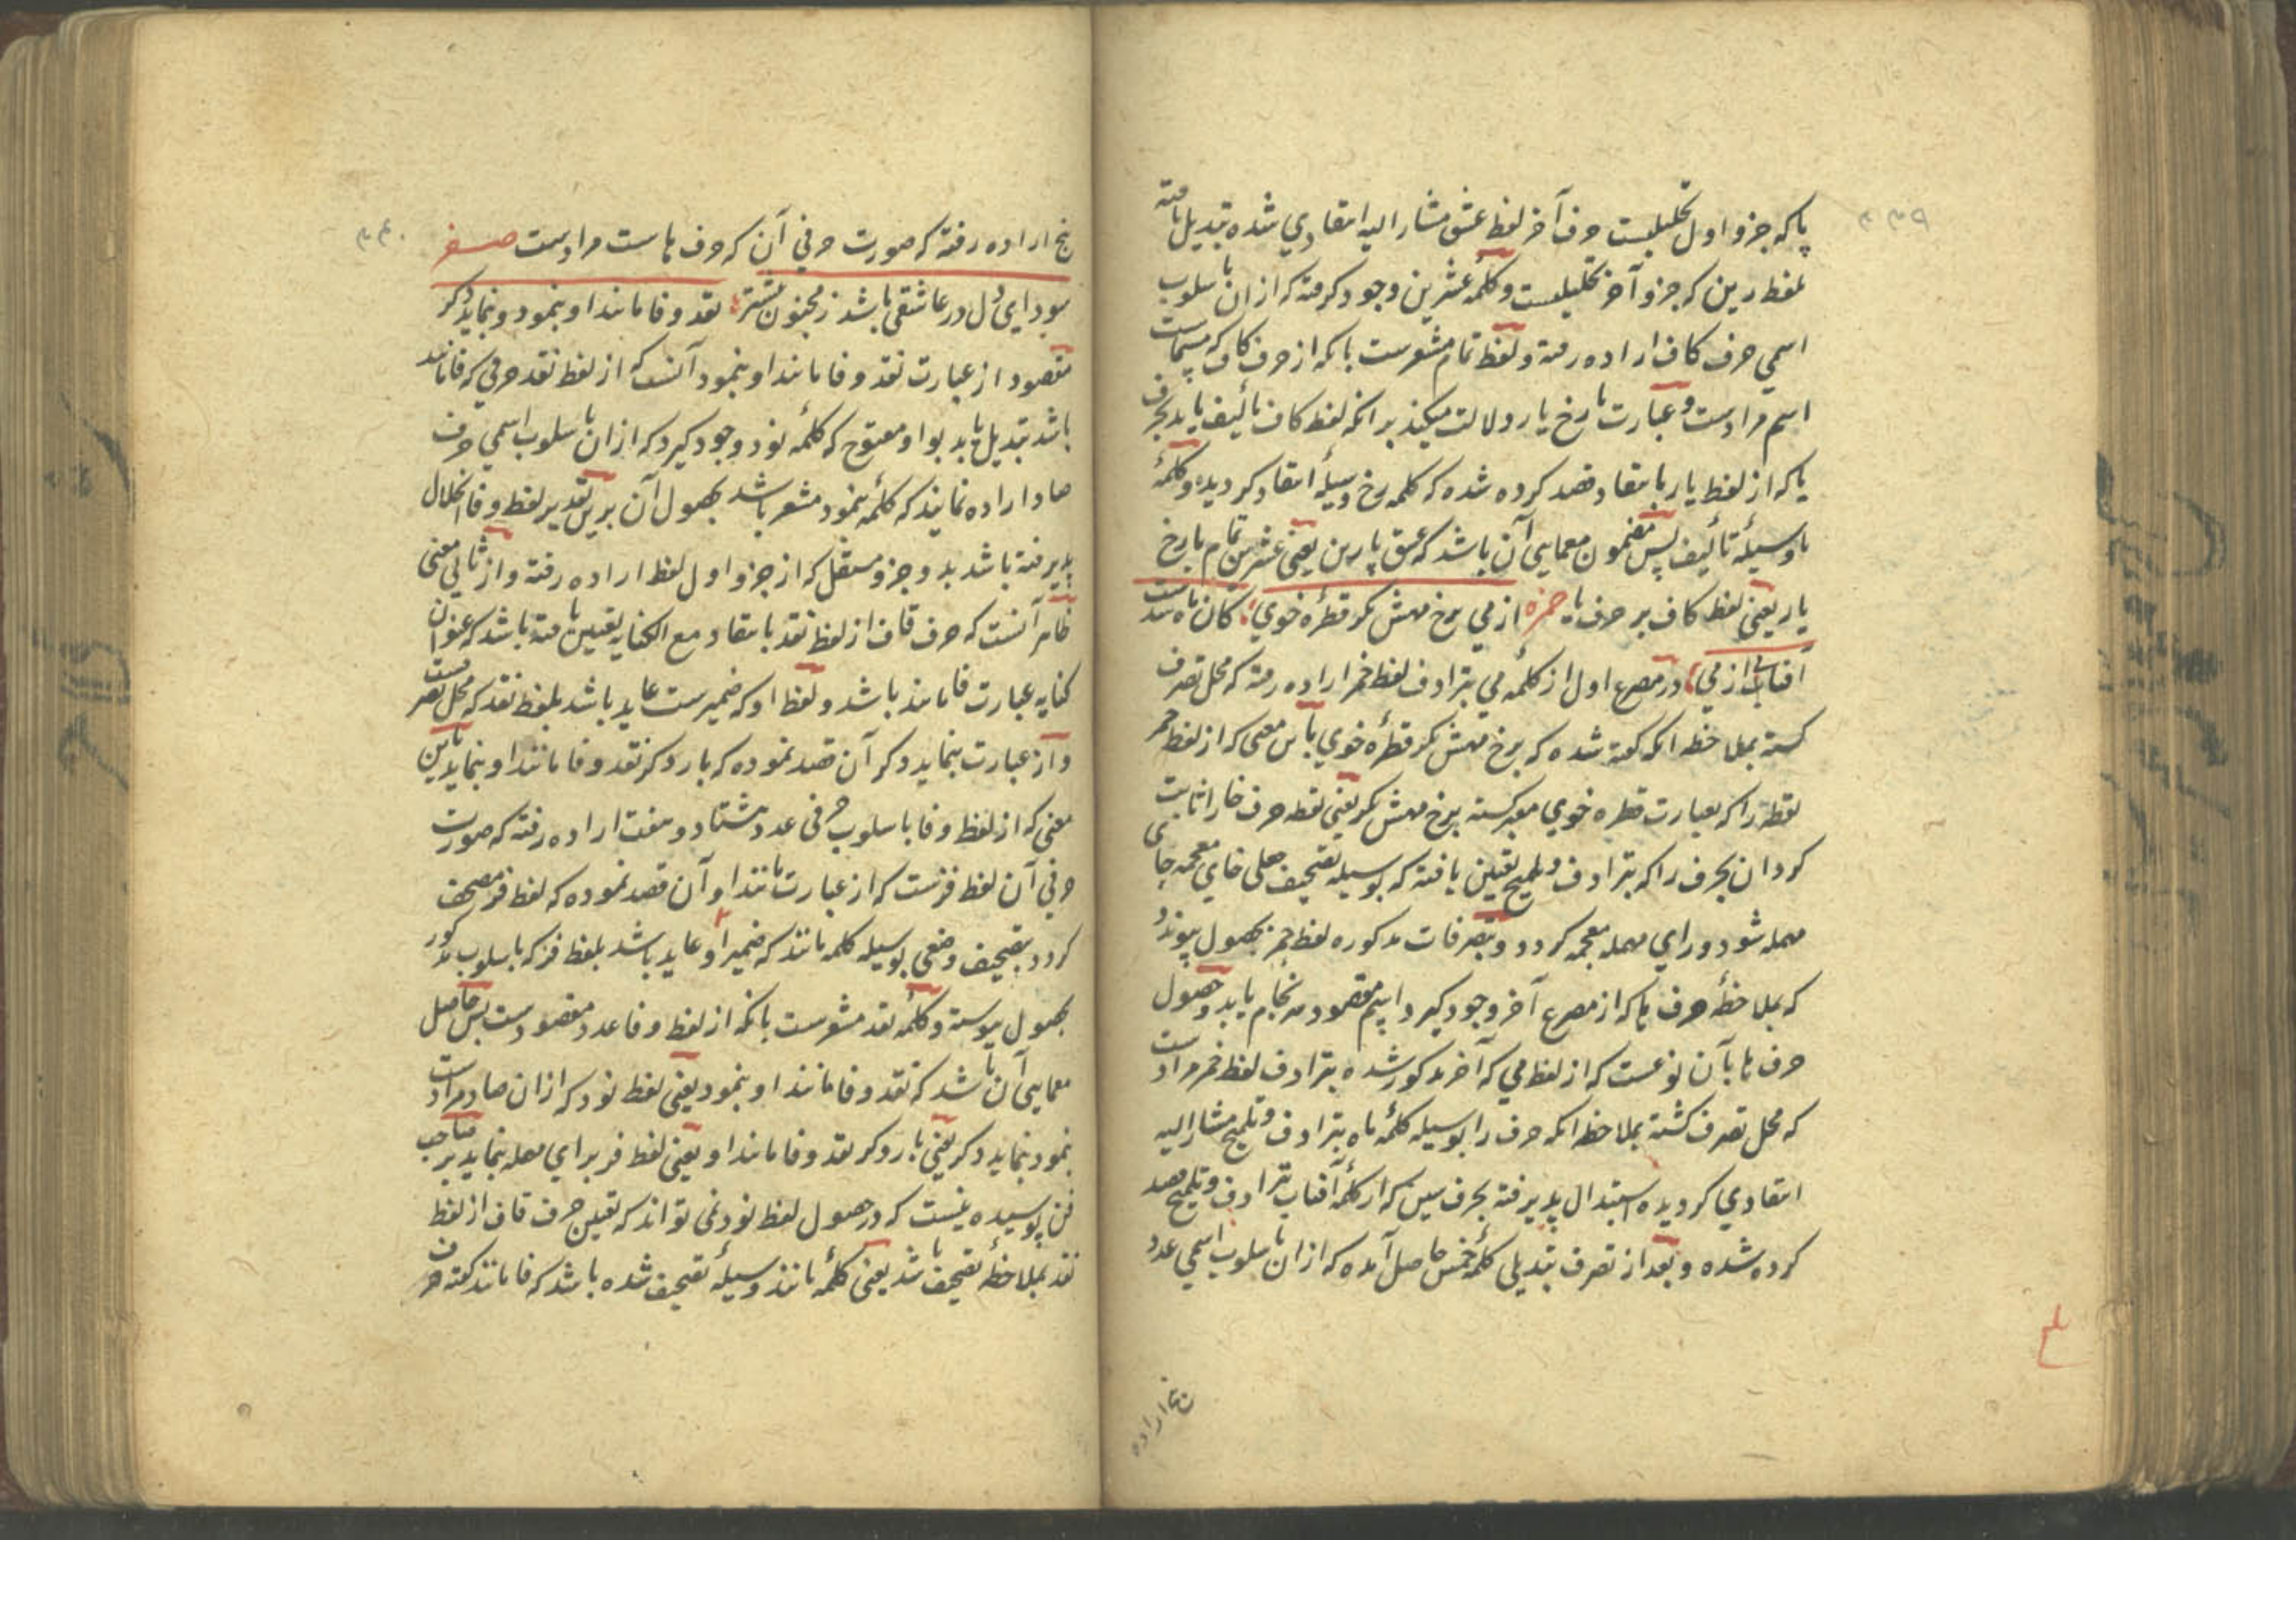 ۳۳۹
پا که جزو اول تحلیلیست حرف آخر لفظ عشق مشار الیه انتقادی شده تبدیل یافته
بلفظ رین که جزو آخر تحلیلیست و کلمه عشرین وجود گرفته که ازان باسلوب
اسمی حرف کاف اراده رفته و لفظ تمام مشعرست بانکه از حرف کاف که مسماست
اسم مرادست و عبارت با رخ یار دلالت میکند برانکه لفظ کاف تألیف یابد بحرف
یا که از لفظ یار بانتقاد قصد کرده شده که کلمه رخ وسیلۀ انتقاد گردیده و کلمۀ
با وسیلۀ تألیف پس مضمون معمایی آن باشد که عشق پا رین یعنی عشرین تمام با رخ
یار یعنی لفظ کاف بر حرف یا حمزه از می برخ مهش نگر قطرۀ خوی کان ماه شدست
آفتابی از می در مصرع اول از کلمۀ می بترادف لفظ خمر اراده رفته که محل تصرف
گشته بملاحظه انکه گفته شده که برخ مهش نگر قطرۀ خوی باین معنی که از لفظ خمر
نقطه را که بعبارت قطره خوی معبر گشته برخ مهش نگر یعنی نقطه حرف خا را ثابت
گردان بحرف را که بترادف و تلمیح تعیین یافته که بوسیله تصحیف جعلی خای معجمه حای
مهمله شود و رای مهمله معجمه گردد و بتصرفات مذکوره لفظ حمز بحصول پیوندد
که بملاحظۀ حرف ها که از مصرع آخر وجود گیرد اسم مقصود سرانجام یابد و حصول
حرف ها بآن نوعست که از لفظ می که آخر مذکور شده بترادف لفظ خمر مرادست
که محل تصرف گشته بملاحظه انکه حرف را بوسیله کلمۀ ماه بترادف و تلمیح مشار الیه
انتقادی گردیده استبدال پذیرفته بحرف سین که از کلمۀ آفتاب بترادف و تلمیح قصد
کرده شده و بعد از تصرف تبدیلی کلمۀ خمس حاصل آمده که ازان باسلوب اسمی عدد
پنج اراده
۳۴۰
پنج اراده رفته که صورت حرفی آن که حرف هاست مرادست صفر
سودای دل در عاشقی باشد ز مجنون بیشتر نقد وفا مانند او بنمود و بنماید دگر
مقصود از عبارت نقد وفا مانند او بنمود آنست که از لفظ نقد حرفی که فا مانند
باشد تبدیل یابد بواو مفتوح که کلمۀ نود وجود گیرد که ازان باسلوب اسمی حرف
صاد اراده نمایند که کلمۀ بنمود مشعر باشد بحصول آن برین تقدیر لفظ وفا انحلال
پذیرفته باشد بدو جزو مستقل که از جزو اول لفظ اراده رفته و از ثانی معنی
ظاهر آنست که حرف قاف از لفظ نقد بانتقاد مع الکنایه تعیین یافته باشد که عنوان
کنایه عبارت فا مانند باشد و لفظ او که ضمیرست عاید باشد بلفظ نقد که محل تصرفست
و از عبارت بنماید دگر آن قصد نموده که بار دگر نقد وفا مانند او بنماید باین
معنی که از لفظ وفا باسلوب حرفی عدد هشتاد و هفت اراده رفته که صورت
حرفی آن لفظ فزست که از عبارت مانند او آن قصد نموده که لفظ فز مصحف
گردد بتصحیف وضعی بوسیله کلمه مانند که ضمیر او عاید باشد بلفظ فز که باسلوب مذکور
بحصول پیوسته و کلمۀ نقد مشعرست بانکه از لفظ وفا عدد مقصودست پس حاصل
معمایی آن باشد که نقد وفا مانند او بنمود یعنی لفظ نود که ازان صاد مرادست
بنمود بنماید دگر یعنی بار دگر نقد وفا مانند او یعنی لفظ فر برای مهمله بنماید بر صاحب
فن پوشیده نیست که در حصول لفظ نود نمی تواند که تعیین حرف قاف از لفظ
نقد بملاحظۀ تصحیف باشد یعنی کلمۀ مانند وسیلۀ تصحیف شده باشد که فا مانند گفته حرف